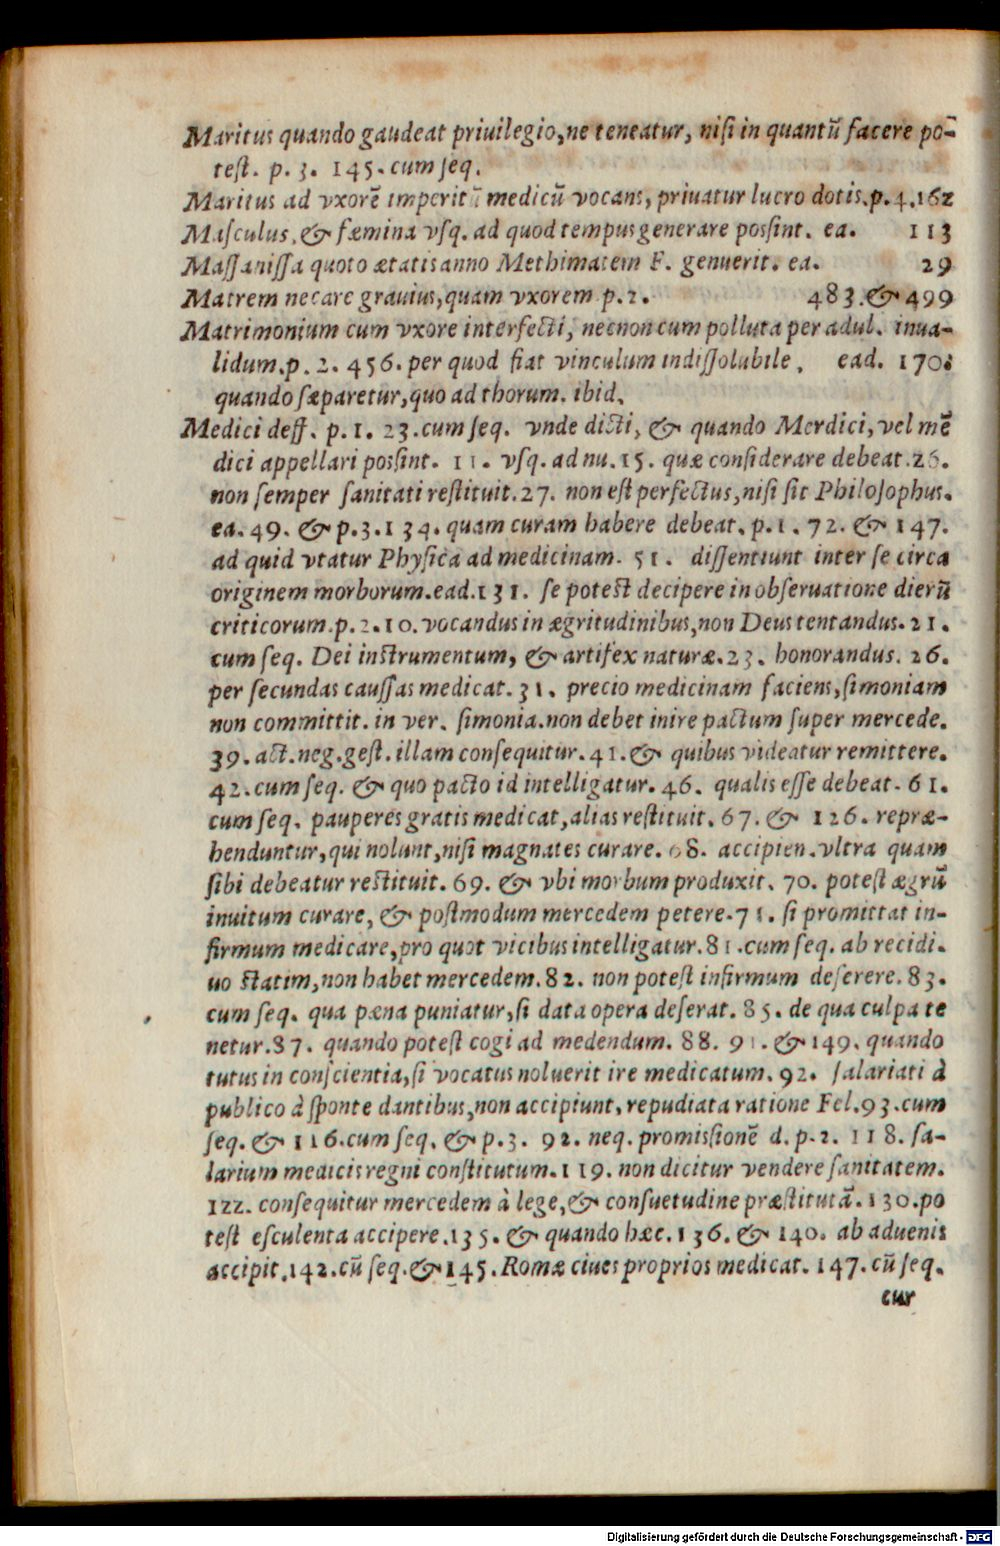 Maritus quando gaudeat priuilegio, ne teneatur, nisi in quantũ facere po-
test. p. 3. 145. cum seq.
Maritus ad vxorẽ imperitũ medicũ vocans, priuatur lucro dotis. p. 4. 162
Masculus, & fæmina vsq. ad quod tempus generare possint. ea. 113
Massanissa quoto ætatis anno Methimatem F. genuerit. ea. 29
Matrem necare grauius, quam vxorem p. 2. 483. & 499
Matrimonium cum vxore interfecti, necnon cum polluta per adul. inua-
lidum. p. 2. 456. per quod fiat vinculum indissolubile. ead. 170.
quando sæparetur, quo ad thorum. ibid.
Medici deff. p. 1. 23. cum seq. vnde dicti, & quando Merdici, vel mẽ
dici appellari possint. 11. vsq. ad nu. 15. quæ considerare debeat. 26.
non semper sanitati restituit. 27. non est perfectus, nisi sit Philosophus.
ea. 49. & p. 3. 134. quam curam habere debeat. p. 1. 72. & 147.
ad quid vtatur Physica ad medicinam. 51. dissentiunt inter se circa
originem morborum. ead. 131. se potest decipere in obseruatione dierũ
criticorum. p. 2. 10. vocandus in ægritudinibus, non Deus tentandus. 21.
cum seq. Dei instrumentum, & artifex naturæ. 23. honorandus. 26.
per secundas caussas medicat. 31. precio medicinam faciens, simoniam
non committit. in ver. simonia. non debet inire pactum super mercede.
39. act. neg. gest. illam consequitur. 41. & quibus videatur remittere.
42. cum seq. & quo pacto id intelligatur. 46. qualis esse debeat. 61.
cum seq. pauperes gratis medicat, alias restituit. 67. & 126. repræ-
henduntur, qui nolunt, nisi magnates curare. 68. accipien. vltra quam
sibi debeatur restituit. 69. & vbi morbum produxit. 70. potest ægrũ
inuitum curare, & postmodum mercedem petere. 71. si promittat in-
firmum medicare, pro quot vicibus intelligatur. 81. cum seq. ab recidi-
uo statim, non habet mercedem. 82. non potest infirmum deserere. 83.
cum seq. qua pæna puniatur, si data opera deserat. 85. de qua culpa te
netur. 87. quando potest cogi ad medendum. 88. 91. & 149. quando
tutus in conscientia, si vocatus noluerit ire medicatum. 92. salariati à
publico à sponte dantibus, non accipiunt, repudiata ratione Fel. 93. cum
seq. & 116. cum seq. & p. 3. 92. neq. promissionẽ d. p. 2. 118. sa-
larium medicis regni constitutum. 119. non dicitur vendere sanitatem.
122. consequitur mercedem à lege, & consuetudine præstitutã. 130. po
test esculenta accipere. 135. & quando hæc. 136. & 140. ab aduenis
accipit. 142. cũ seq. & 145. Romæ ciues proprios medicat. 147. cũ seq.
cur
Digitalisierung gefördert durch die Deutsche Forschungsgemeinschaft - DFG